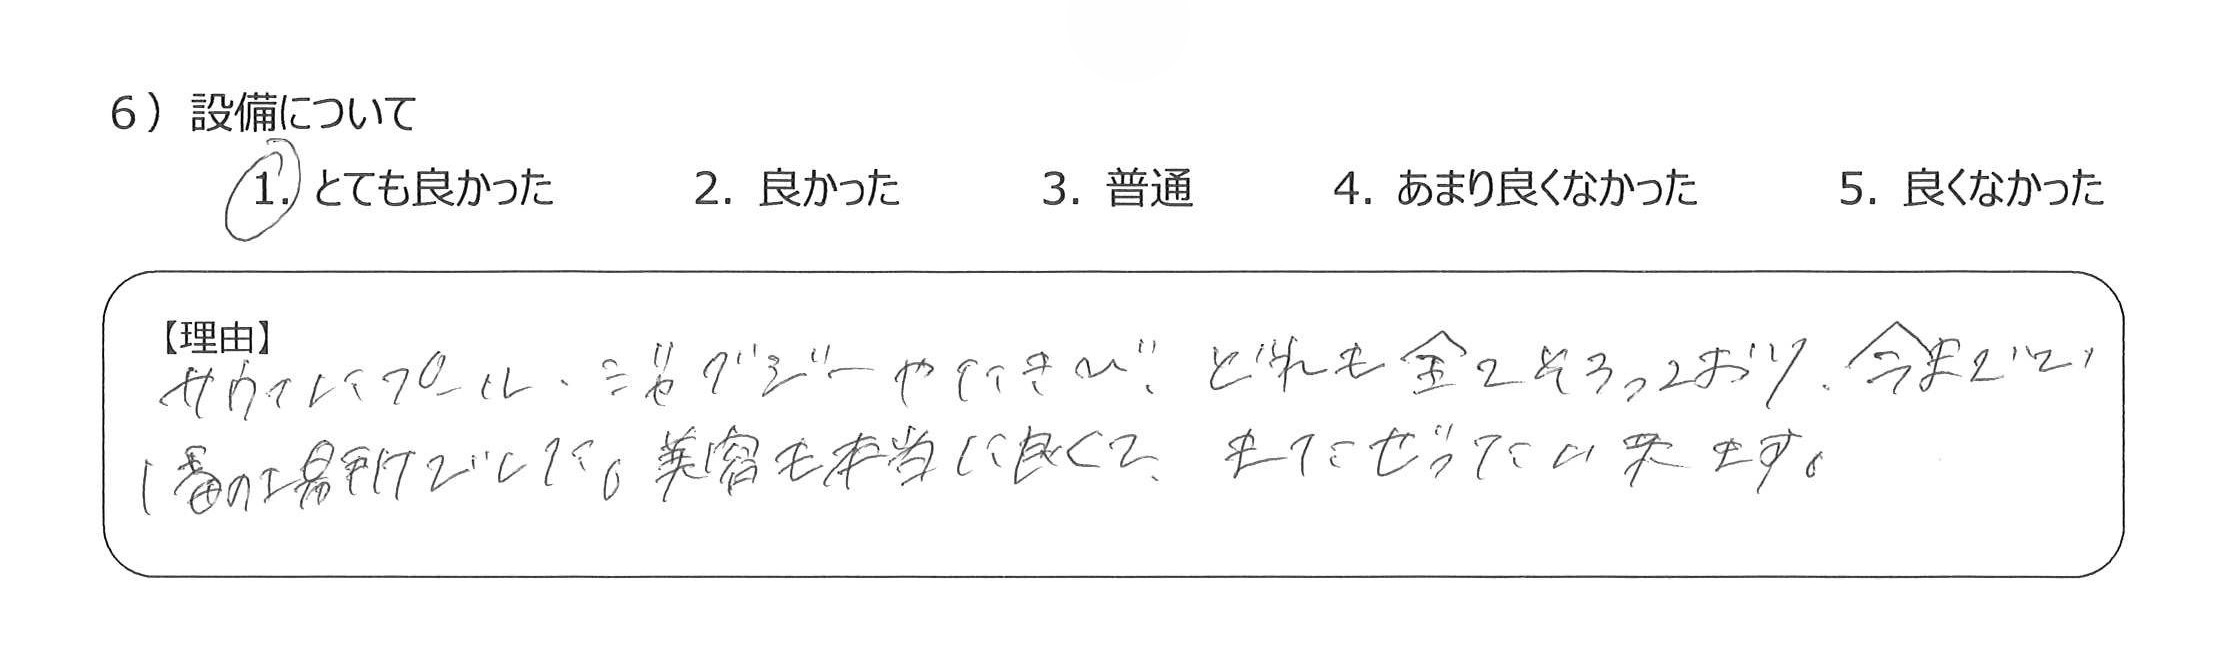 6）設備について
1. とても良かった 2. 良かった 3. 普通 4. あまり良くなかった 5. 良くなかった
【理由】
プール・ジャグジーやたき火、どれも全てそろっており、今までで
1番の場所でした。美容も本当に良くて、またぜったい来ます。